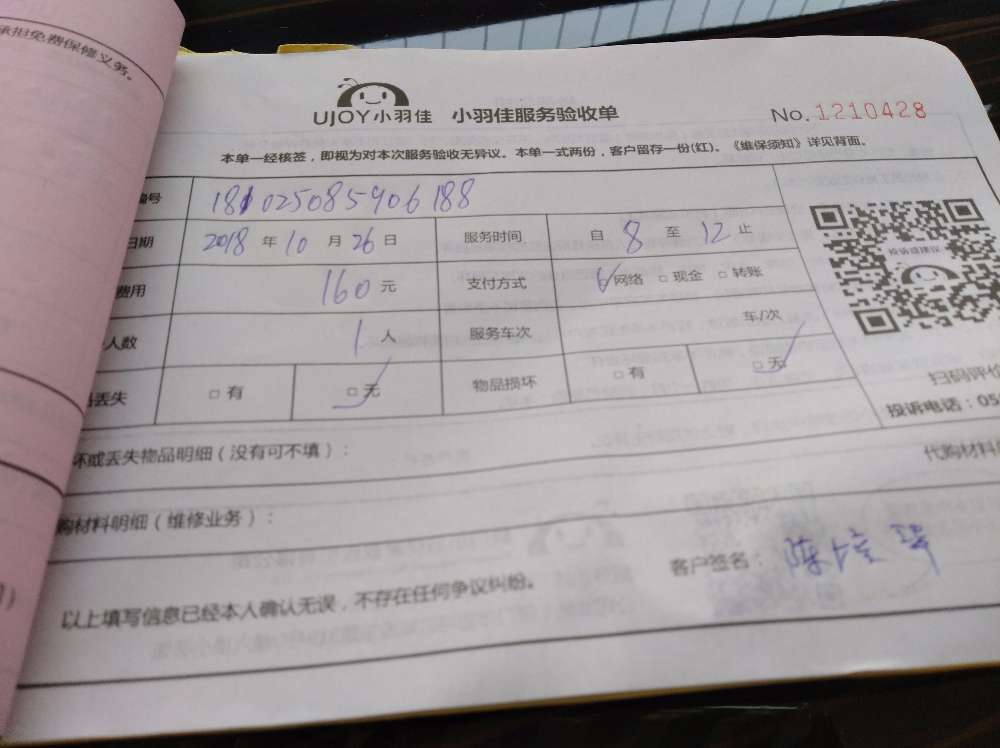 承担免费保修义务。
UJOY小羽佳 小羽佳服务验收单 No. 1210428
本单一经核签，即视为对本次服务验收无异议。本单一式两份，客户留存一份(红)。《维保须知》详见背面。
编号 181025085906188
日期 2018 年 10 月 26 日 服务时间 自 8 至 12 止
费用 160 元 支付方式 网络 □ 现金 □ 转账
人数 1 人 服务车次 车/次
丢失 □ 有 □ 无 物品损坏 □ 有 □ 无
投诉或建议
扫码评价
投诉电话：05
坏或丢失物品明细（没有可不填）：
代购材料
购材料明细（维修业务）：
以上填写信息已经本人确认无误，不存在任何争议纠纷。 客户签名： 陈